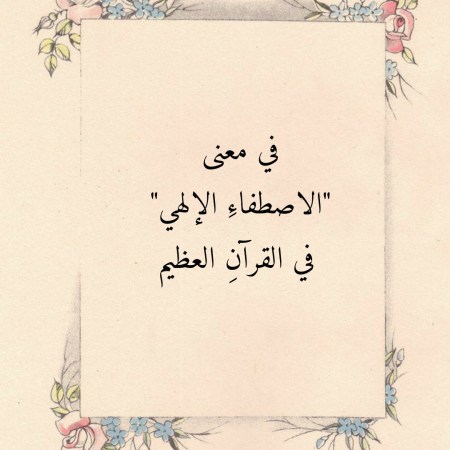 في معنى
"الاصطفاءِ الإلهي"
في القرآنِ العظيم